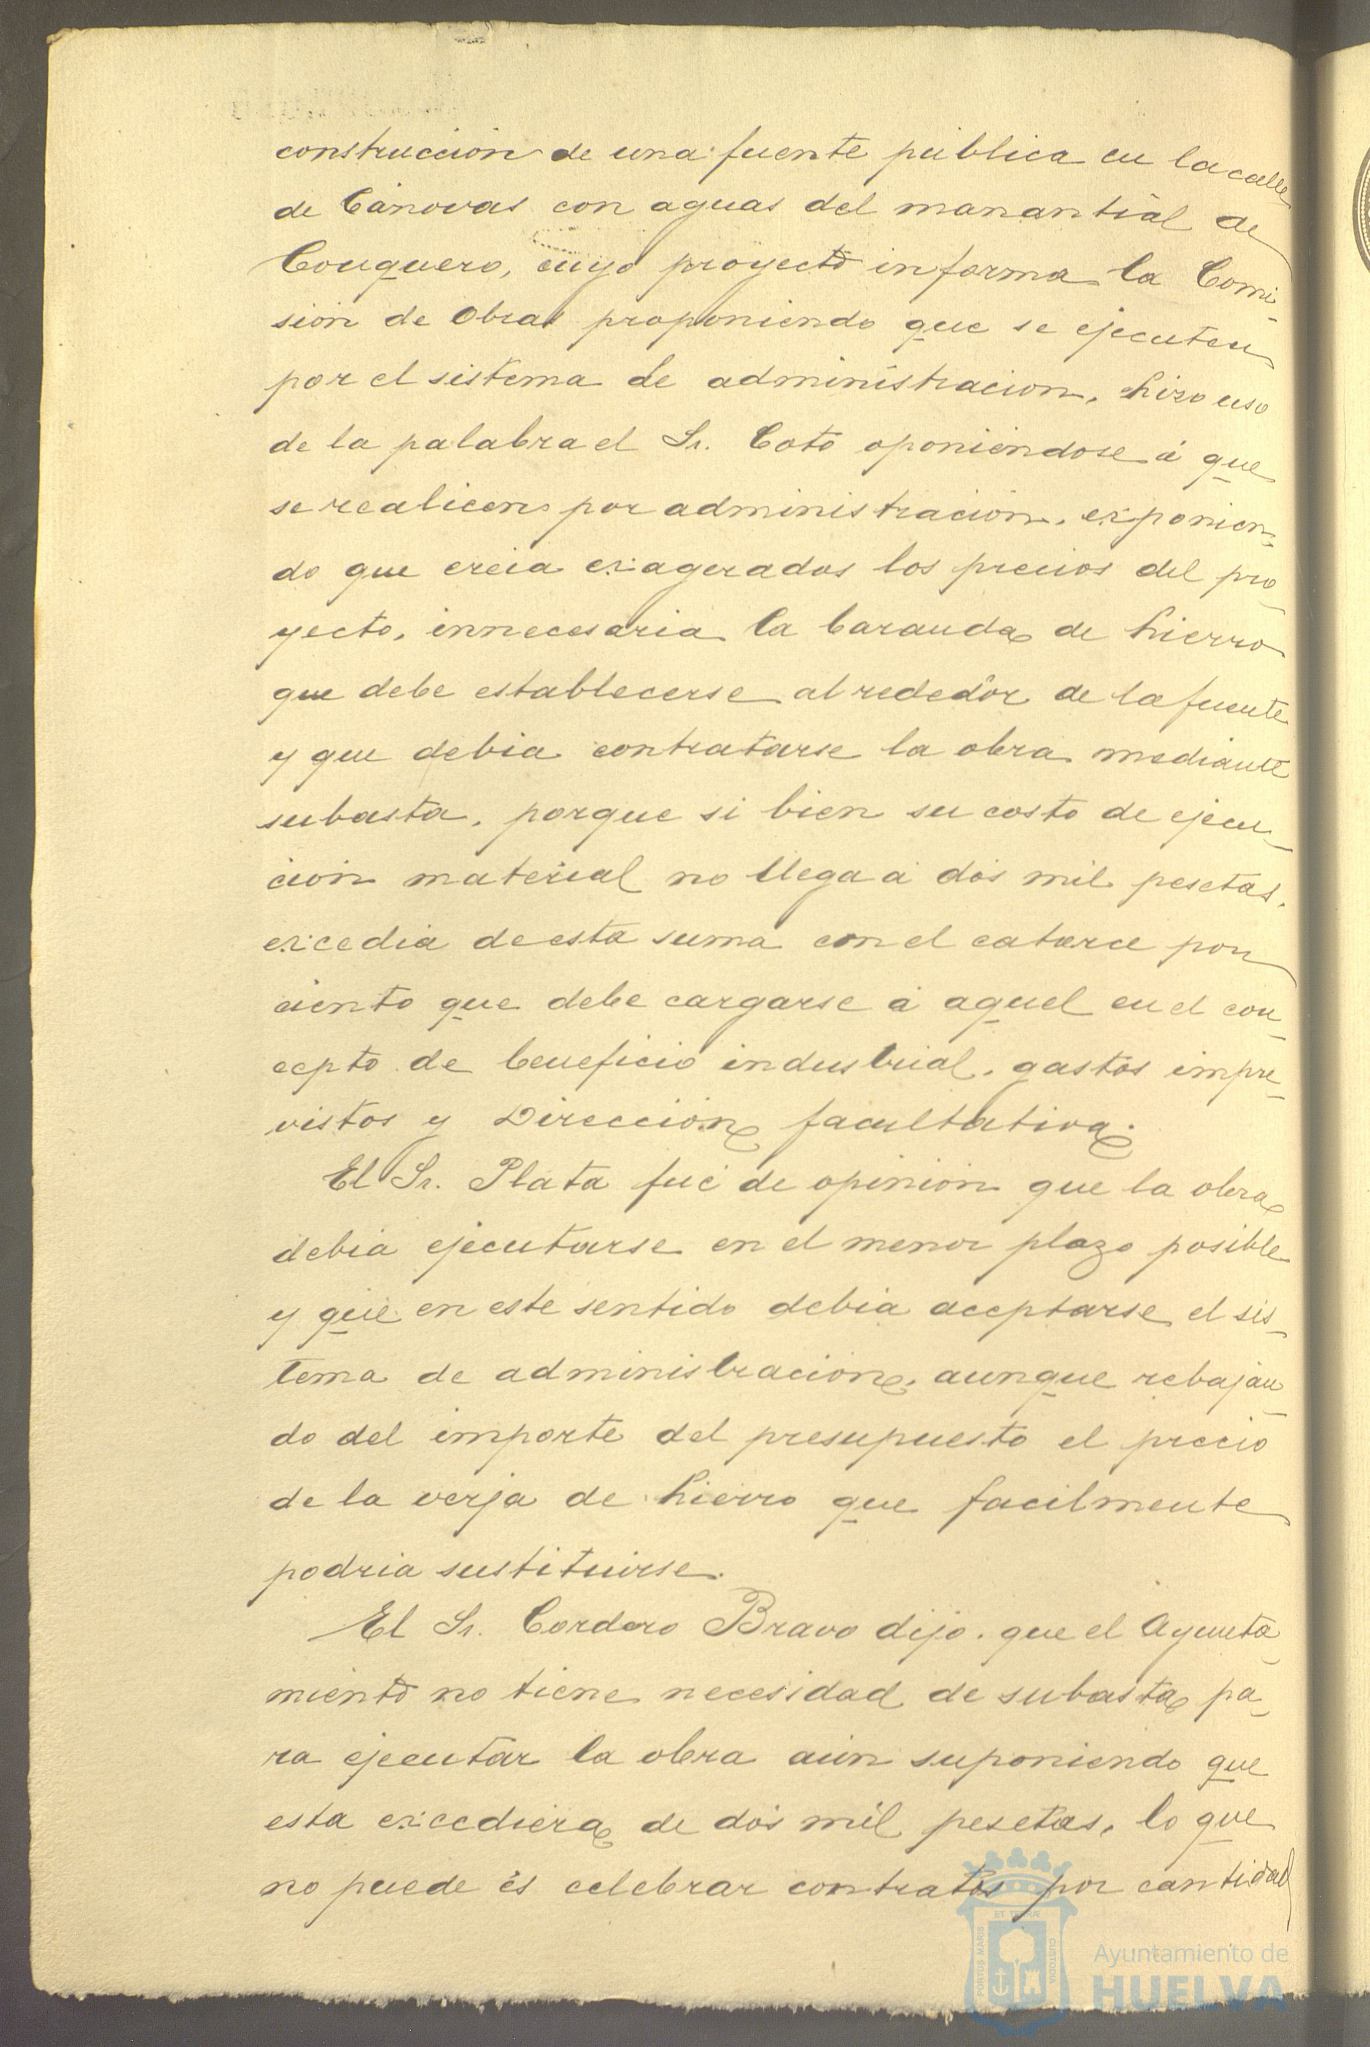 construccion de una fuente pública en la calle
de Cánovas con aguas del manantial de
Conquero, cuyo proyecto informa la Comi-
sión de Obras proponiendo que se ejecuten
por el sistema de administracion, hizo uso
de la palabra el Sr. Coto oponiéndose á que
se realicen por administración, exponien-
do que creia exagerados los precios del pro-
yecto, innecesaria la baranda de hierro
que debe establecerse alrededor de la fuente
y que debia contratarse la obra mediante
subasta, porque si bien su costo de ejecu-
ción material no llega á dos mil pesetas,
excedia de esta suma con el catorce por
ciento que debe cargarse á aquel en el con-
cepto de beneficio industrial, gastos impre-
vistos y Dirección facultativa.
El Sr. Plata fué de opinión que la obra
debia ejecutarse en el menor plazo posible
y que en este sentido debia aceptarse el sis-
tema de administración, aunque rebajan-
do del importe del presupuesto el precio
de la verja de hierro que facilmente
podria sustituirse.
El Sr. Cordero Bravo dijo que el Ayunta-
miento no tiene necesidad de subasta pa-
ra ejecutar la obra aún suponiendo que
esta excediera de dos mil pesetas, lo que
no puede és celebrar contratos por cantidad
PORTUS MARIS ET TERRAE CUSTODIA
Ayuntamiento de
HUELVA